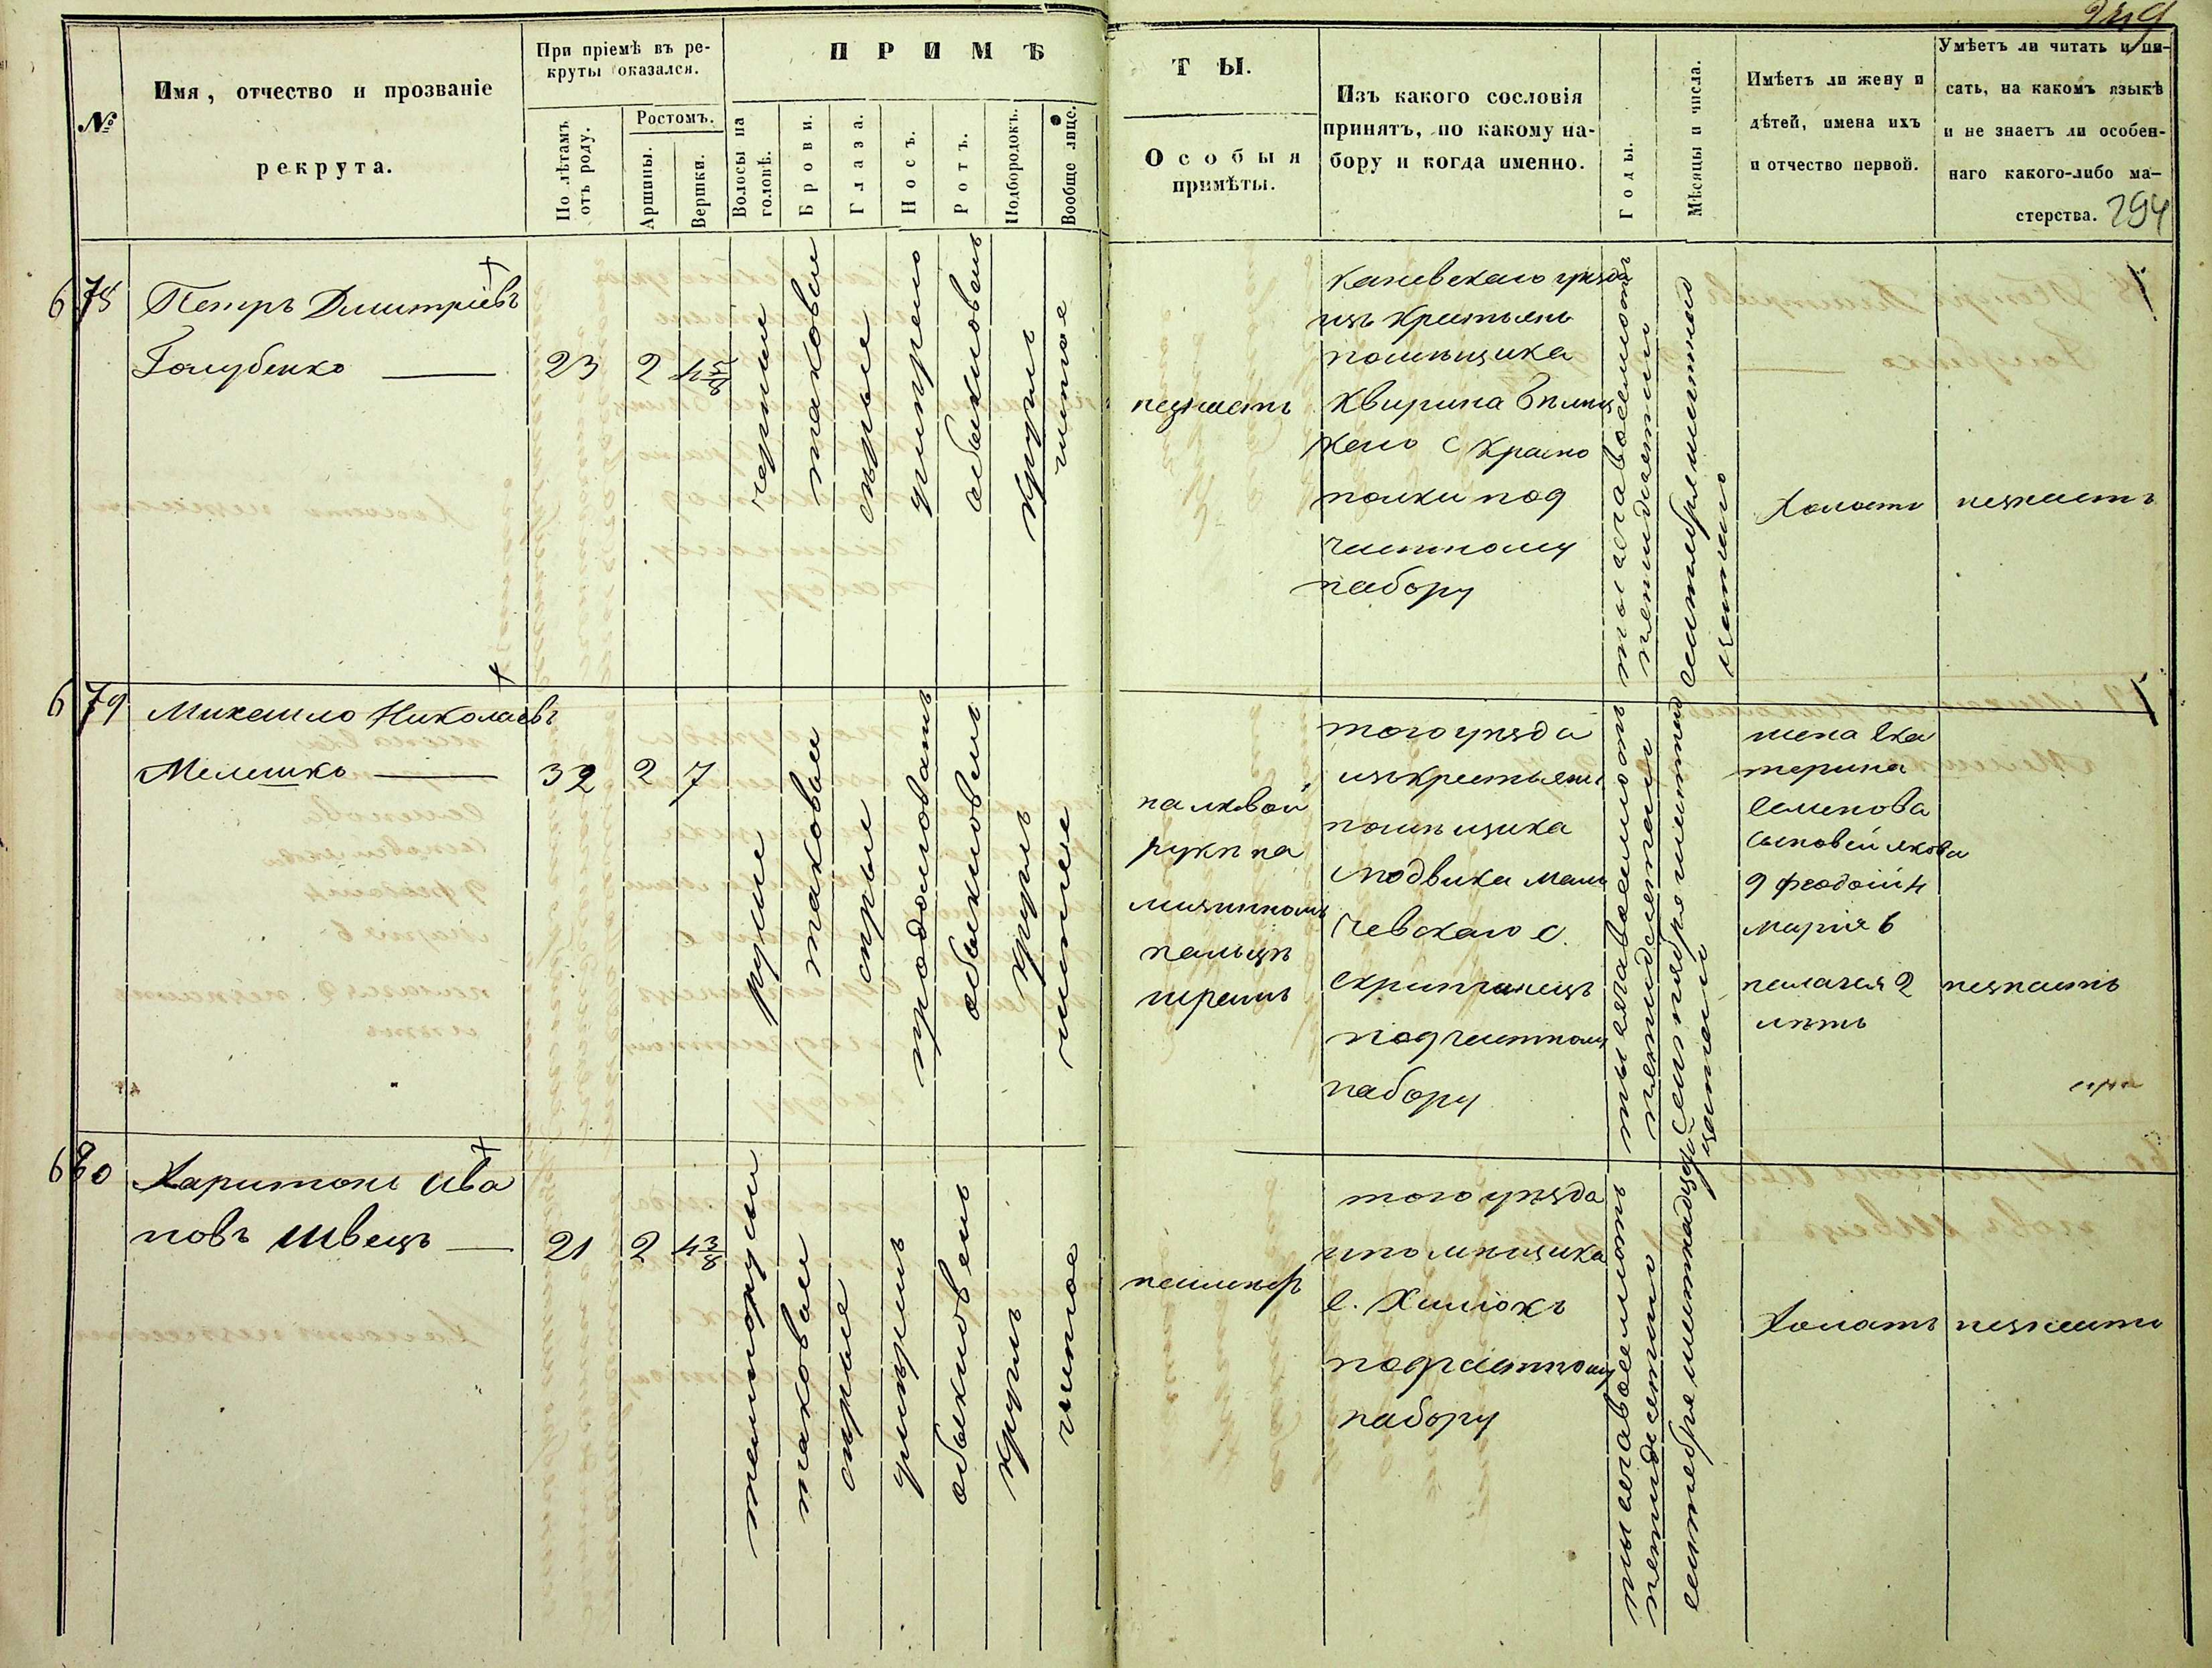 249
№
Имя, отчество и прозваніе
рекрута.
При пріемѣ въ ре-
круты оказался.
По лѣтамъ
отъ роду.
Ростомъ.
Аршины.
Вершки.
ПРИМѢ
Волосы на
головѣ.
Брови.
Глаза.
Носъ.
Ротъ.
Подбородокъ.
Вообще лице.
ТЫ.
Особыя
примѣты.
Изъ какого сословія
принятъ, по какому на-
бору и когда именно.
Годы.
Мѣсяцы и числа.
Имѣетъ ли жену и
дѣтей, имена ихъ
и отчество первой.
Умѣетъ ли читать и пи-
сать, на какомъ языкѣ
и не знаетъ ли особен-
наго какого-либо ма-
стерства. 294
678
Петръ Дмитріевъ
Голубенко
23
2
4 5/8
черные
таковые
сѣрые
умѣрено
обыкновенъ
круглъ
чистое
каневскаго уѣзда
изъ крестьянъ
помѣщика
Квирина
с Красно
полки под
частному
набору
тысяча восемсотъ
пятидесятый
сентября шестнад
цатаго
Холостъ
незнаетъ
679
Михаило Николаевъ
Мелешко
32
2
7
русые
таковые
сѣрые
продолговатъ
обыкновенъ
круглъ
чистое
на лѣвой
рукѣ на
мизинномъ
пальцѣ
шрамъ
того уѣзда
изъ крестьянъ
помѣщика
чевскаго с.
подчастному
набору
тысяча восемсотъ
пятидесятый
сентября шестнад
цатаго
жена Ека
терина
Семенова
сыновей якова
9 феодосій 4
марія 6
пелагея 2
лѣтъ
незнаетъ
680
Харитонъ Ива
новъ Швецъ
21
2
4 3/8
темнорусые
таковые
сѣрые
умѣренъ
обыкновенъ
круглъ
чистое
того уѣзда
помѣщика
с.
подчастному
набору
тысяча восемсотъ
пятидесятаго
сентября шестнадцатый
Холостъ
незнаетъ